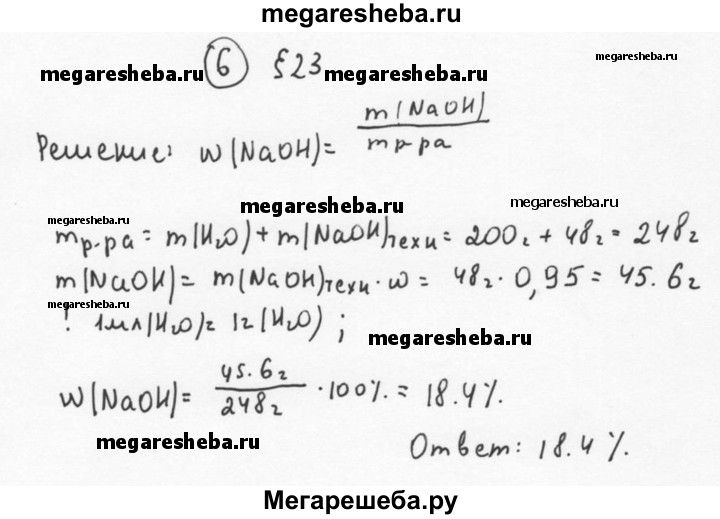 megaresheba.ru
megaresheba.ru 6 §23 megaresheba.ru megaresheba.ru
Решение: w(NaOH) = m(NaOH) / mр-ра
megaresheba.ru megaresheba.ru
mр-ра = m(H₂O) + m(NaOH)техн = 200г + 48г = 248г
m(NaOH) = m(NaOH)техн · w = 48г · 0,95 = 45.6г
megaresheba.ru
! 1мл(H₂O) = 1г(H₂O) ;
megaresheba.ru
w(NaOH) = 45.6г / 248г · 100% = 18.4%.
megaresheba.ru Ответ: 18.4%.
Мегарешеба.ру